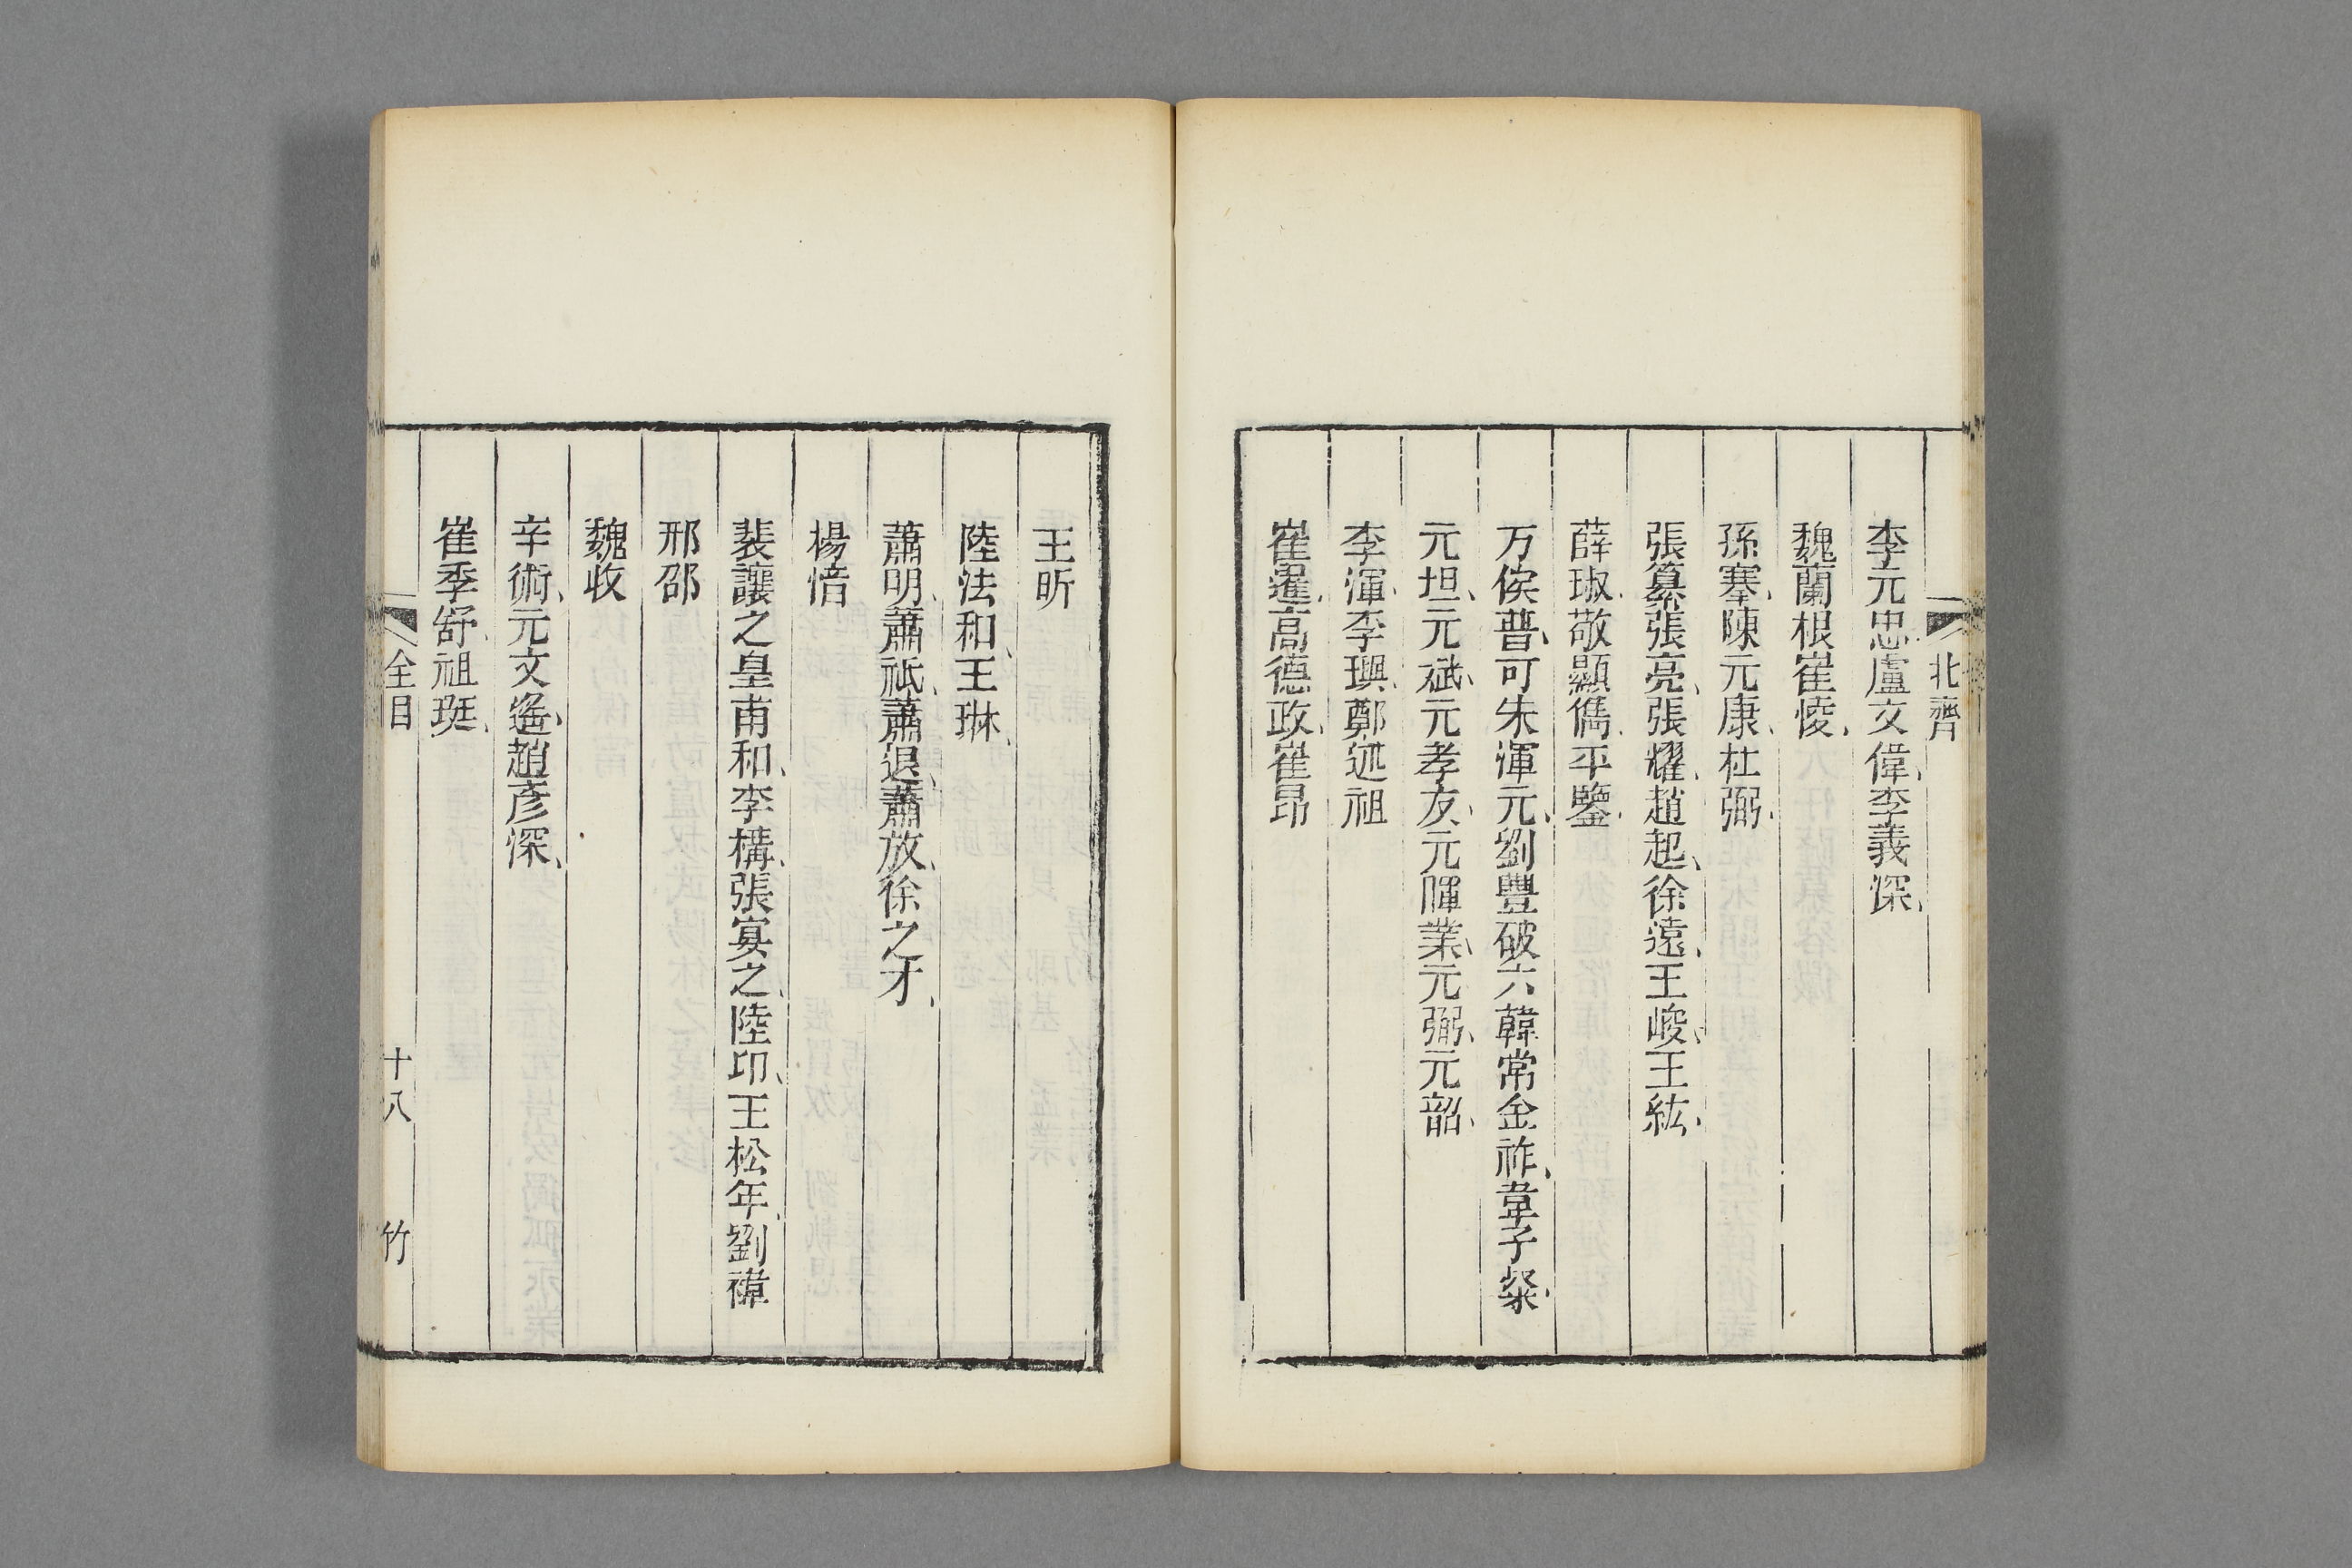 北齊
李元忠盧文偉、李義深、
魏蘭根崔㥄、
孫搴、陳元康、杜弼、
張纂張亮、張耀、趙起、徐遠、王峻、王紘、
薛琡、敬顯儁、平鑒、
万俟普、可朱渾元、劉豐破六韓常金祚、韋子粲、
元坦、元斌、元孝友、元暉業、元弼、元韶、
李渾、李璵、鄭述祖
崔暹、高德政、崔昂
王昕
陸法和、王琳、
蕭明、蕭祗、蕭退、蕭放、徐之才、
楊愔
裴讓之皇甫和、李構、張宴之、陸卬、王松年、劉禕
邢邵
魏收
辛術、元文遙、趙彥深、
崔季舒、祖珽、
全目
十八
竹